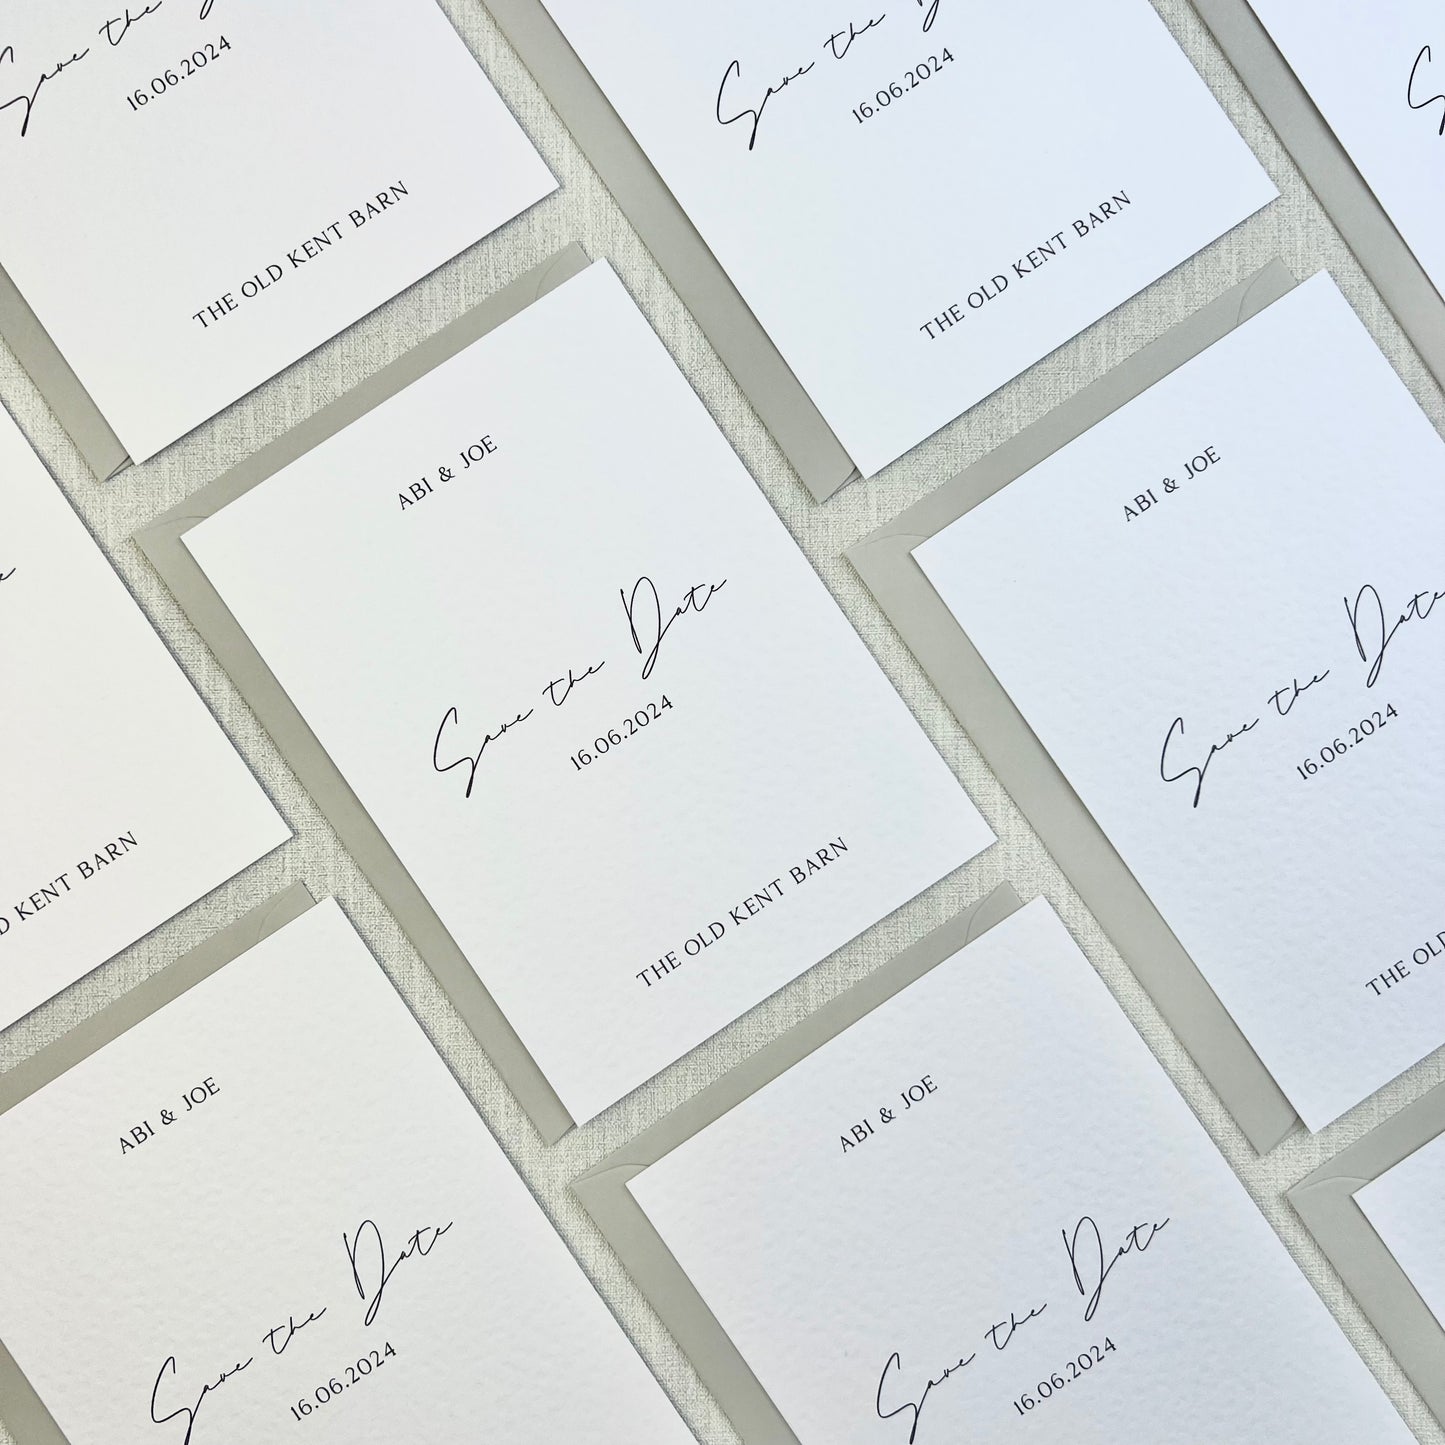 Save the
16.06.2024
THE OLD KENT BARN
Save the D
16.06.2024
THE OLD KENT BARN
ABI & JOE
Save the Date
16.06.2024
THE OLD KENT BARN
ABI & JOE
Save the Date
16.06.2024
THE OLD
KENT BARN
ABI & JOE
Save the Date
16.06.2024
ABI & JOE
Save the Date
16.06.2024